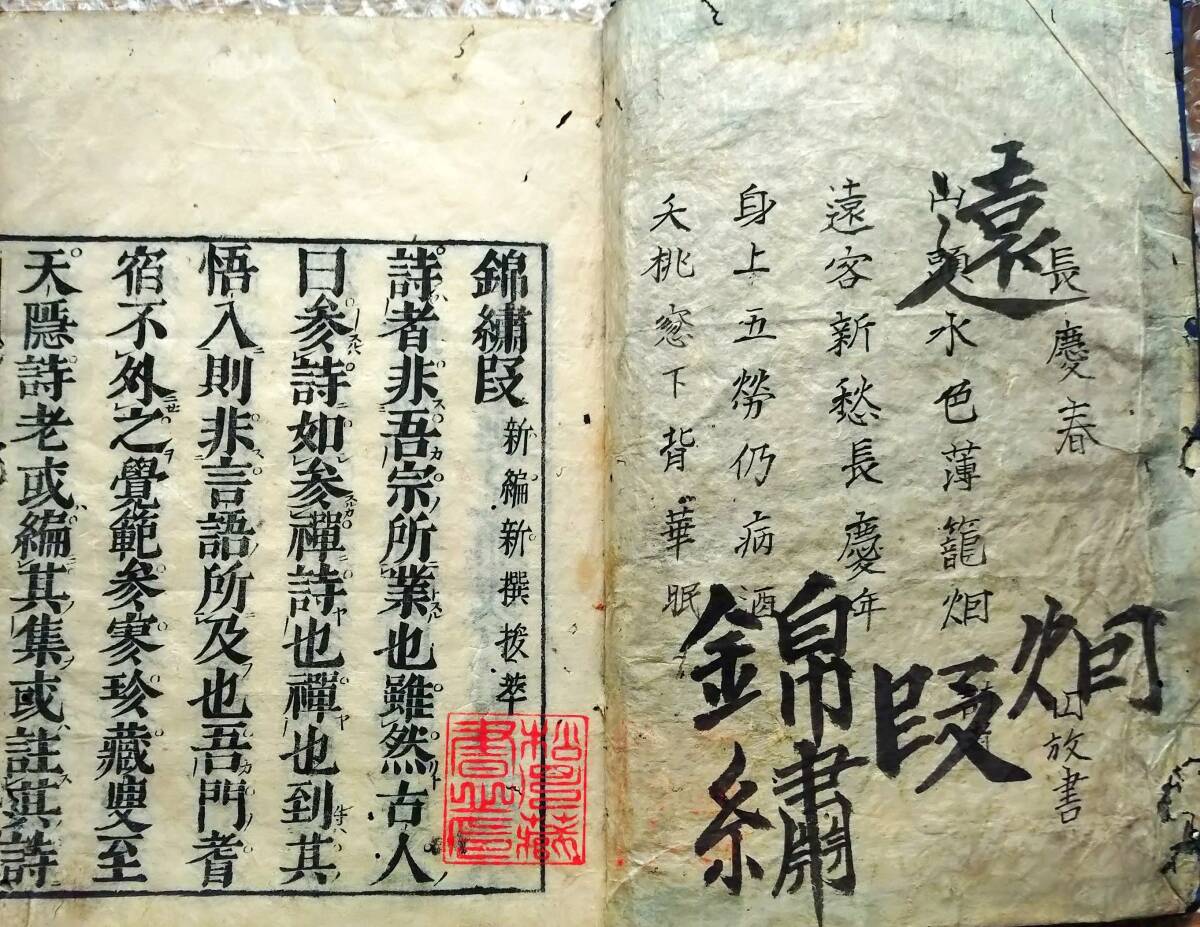 長慶春
山頭水色薄籠烟
遠客新愁長慶年
身上五勞仍病酒
夭桃窓下背華眠
遠
烟
段
錦繡
田放書
錦繡段 新編新撰拔萃
詩者非吾宗所業也雖然古人
曰參詩如參禪詩也禪也到其
悟入則非言語所及也吾門耆
宿不外之覺範參寥珍藏叟至
天隱詩老或編其集或註其詩